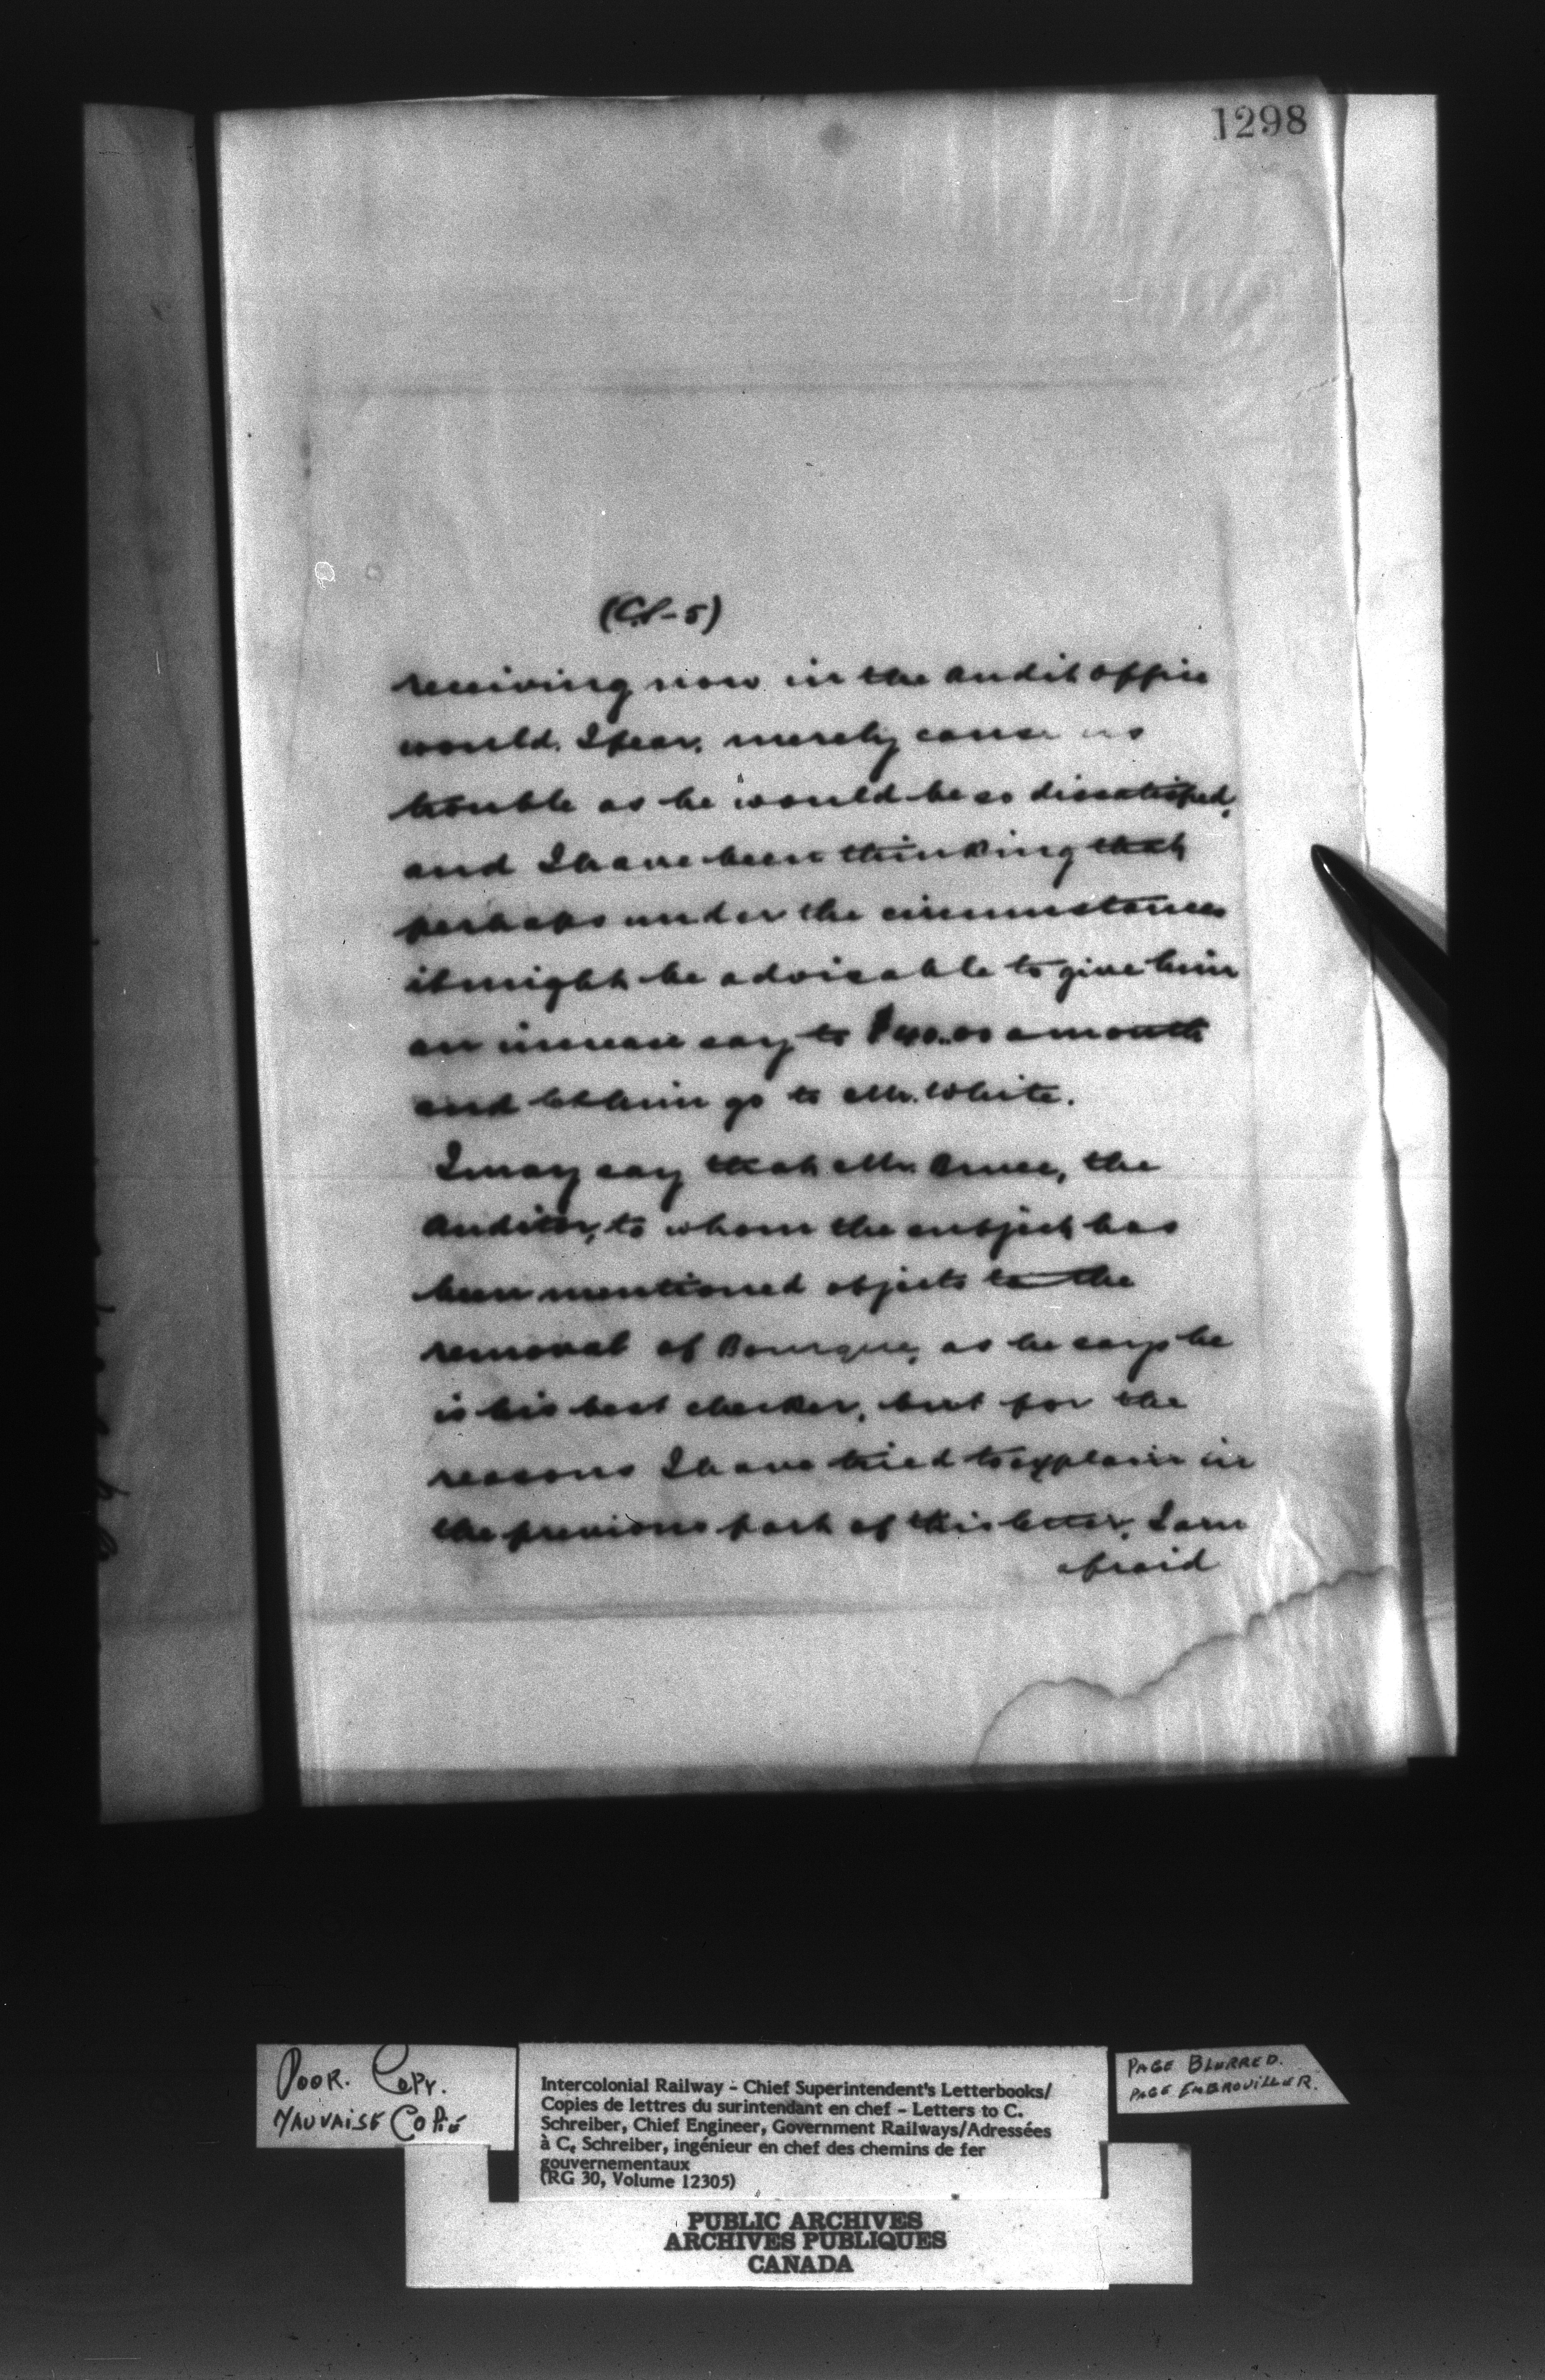 1298
(C.S-5)
receiving now in the audit office
would, I fear, merely cause us
trouble as he would be so dissatisfied,
and I have been thinking that
perhaps under the circumstances
it might be advisable to give him
an increase say to $40.00 a month
and let him go to Mr. White.
I may say that Mr. Bruce, the
Auditor, to whom the subject has
been mentioned objects to the
removal of Bourque, as he says he
is his best checker, but for the
reasons I have tried to explain in
the previous part of this letter, I am
afraid
POOR. COPY.
MAUVAISE COPIE
Intercolonial Railway - Chief Superintendent's Letterbooks/
Copies de lettres du surintendant en chef - Letters to C.
Schreiber, Chief Engineer, Government Railways/Adressées
à C. Schreiber, ingénieur en chef des chemins de fer
gouvernementaux
(RG 30, Volume 12305)
PAGE BLURRED.
PAGE EMBROUILLER.
PUBLIC ARCHIVES
ARCHIVES PUBLIQUES
CANADA